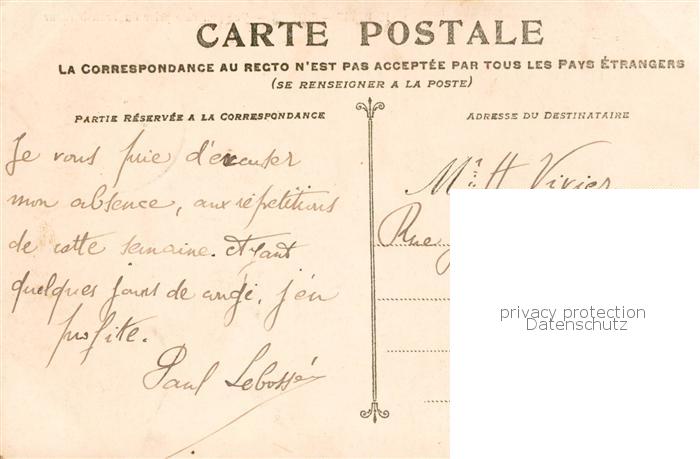 CARTE POSTALE
LA CORRESPONDANCE AU RECTO N'EST PAS ACCEPTÉE PAR TOUS LES PAYS ÉTRANGERS
(SE RENSEIGNER A LA POSTE)
PARTIE RÉSERVÉE A LA CORRESPONDANCE
ADRESSE DU DESTINATAIRE
Je vous prie d'excuser
mon absence, aux répétitions
de cette semaine. Ayant
quelques jours de congé, j'en
profite.
Paul Lebossé
Mr H Vivier
Rue
privacy protection
Datenschutz